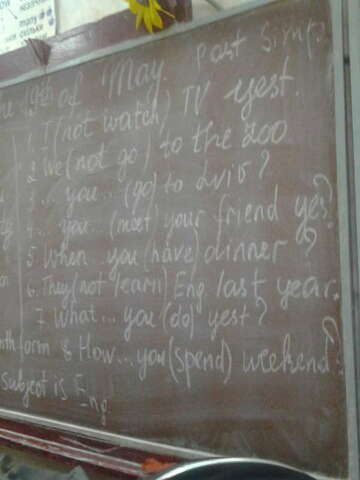 many
of May. Past Simp.
1. I (not watch) TV yest.
2. We (not go) to the zoo
3. ... you ... (go) to Lviv?
4. ... you ... (meet) your friend yes?
5. When ... you (have) dinner?
6. They (not learn) Eng. last year.
7. What ... you (do) yest?
form 8 How ... you (spend) weekend?
subject is Eng.